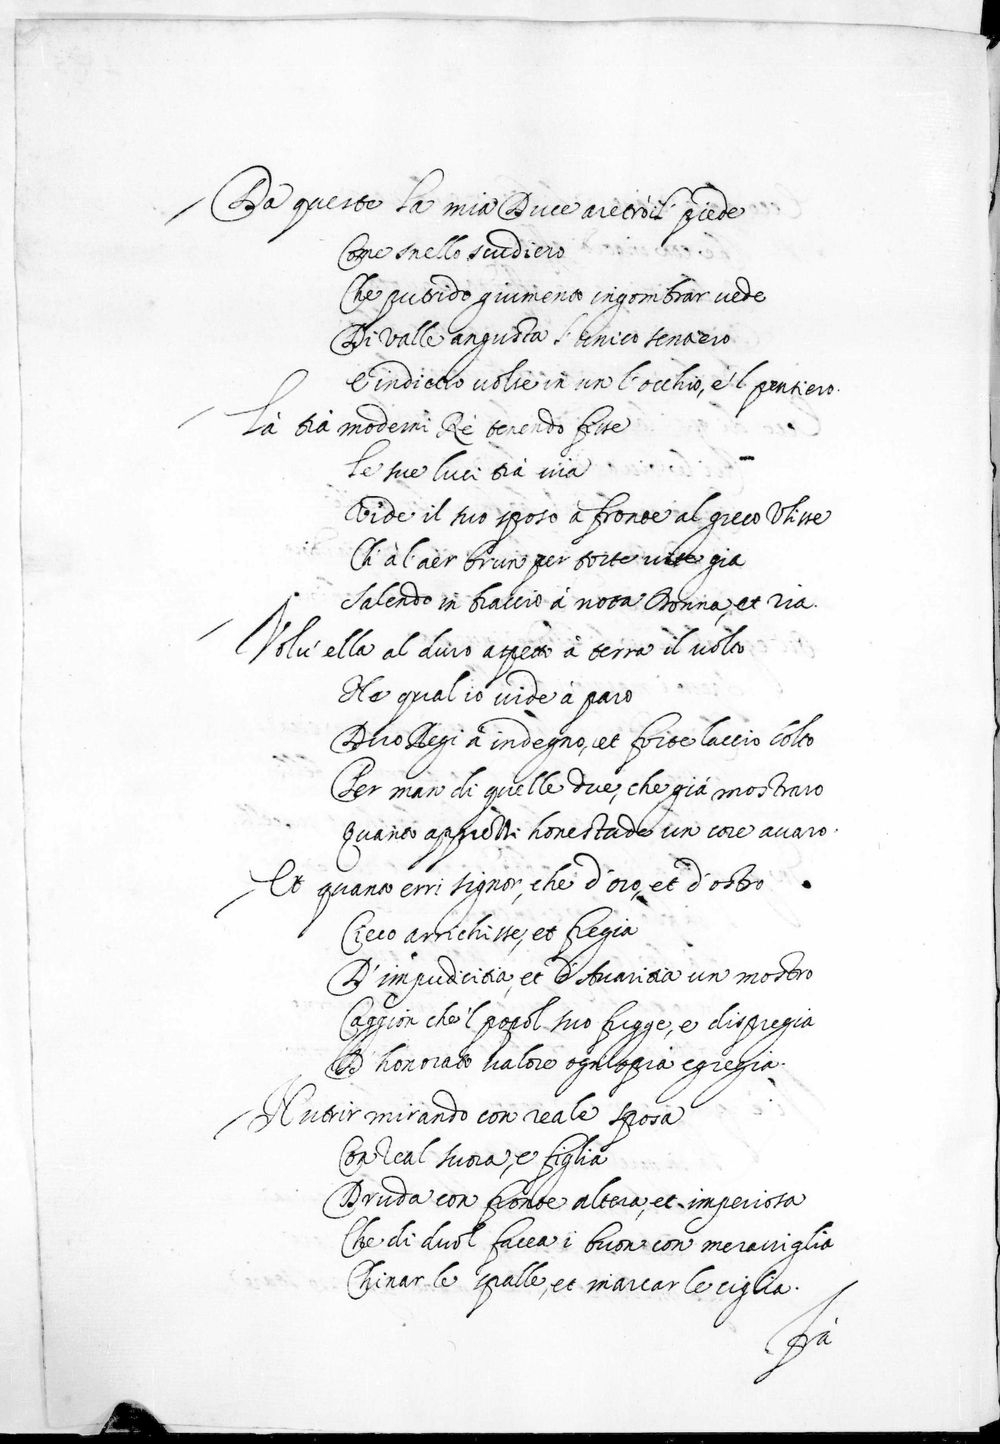 Da queste la mia Duce aretrò il piede
Come snello scudiero
Che putrido giumento ingombrar vede
Di valle angusta l'unico sentiero
E indietro volse in un l'occhio, e'l pensiero.
Là trà moderni Rè tenendo fisse
Le sue luci trà via
Vide il suo sposo à fronte al greco Ulisse
Ch'à l'aer brun per torte vie gia
Salendo in braccio à nova Donna, et ria.
Volv'ella al duro aspetto à terra il volto
Ne qual io vide à paro
Duo Regi à indegno, et forte laccio colto
Per man di quelle due, che già mostraro
Quanto apprezzi honestade un core avaro.
Et quanto erri signor, che d'oro, et d'ostro
Cieco arrichisse, et fregia
D'impudicitia, et d'Avaritia un mostro
Caggion che'l popol suo fugge, e dispregia
D'honorato valore ogn'opra egregia.
Nutrir mirando con reale sposa
Con real suora, e figlia
Druda con fronte altera, et imperiosa
Che di duol facea i buon con meraviglia
Chinar le spalle, et inarcar le ciglia.
Frà